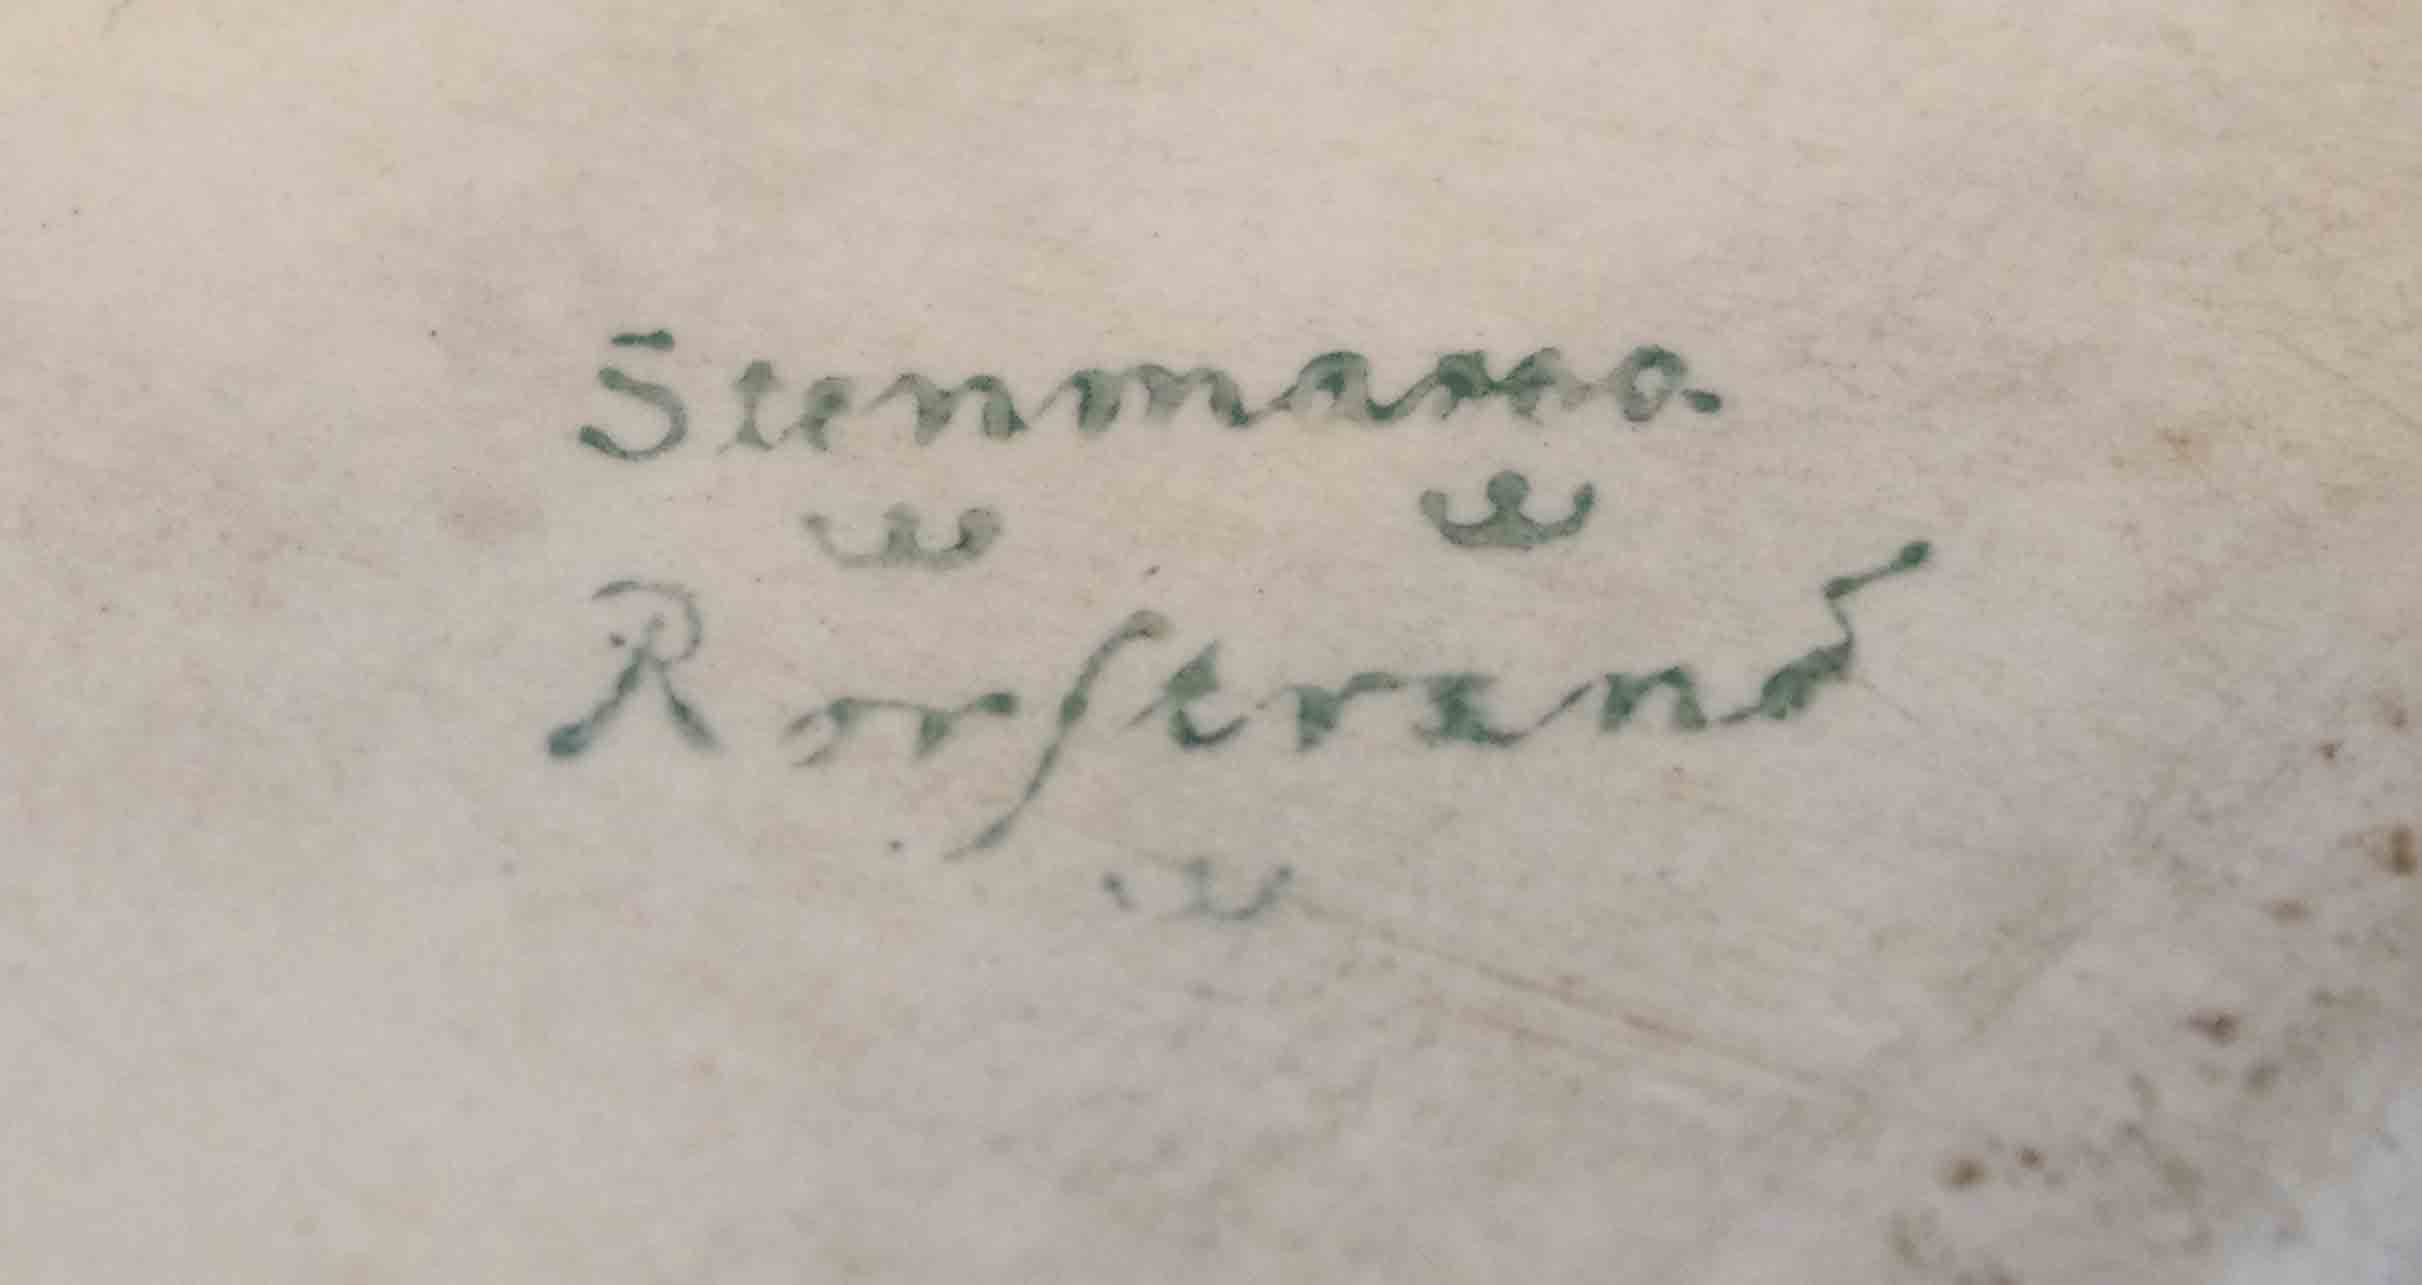 Stenmassa
Rorstrand